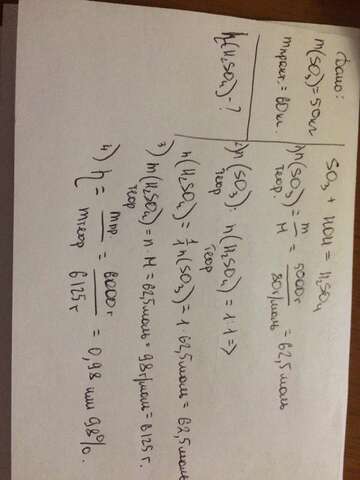 Дано:
m(SO₃)=50кг
mпракт.=60кг.
η(H₂SO₄)-?
SO₃ + HOH = H₂SO₄
1) n(SO₃) = m/M = 5000г/80г/моль = 62,5моль
теор.
2) n(SO₃) : n(H₂SO₄) = 1:1 =>
теор теор
n(H₂SO₄) = 1/1 n(SO₃) = 1 · 62,5моль = 62,5моль
3) m(H₂SO₄) = n · M = 62,5моль · 98г/моль = 6125г.
теор
4) η = mпр/mтеор = 6000г/6125г = 0,98 или 98%.